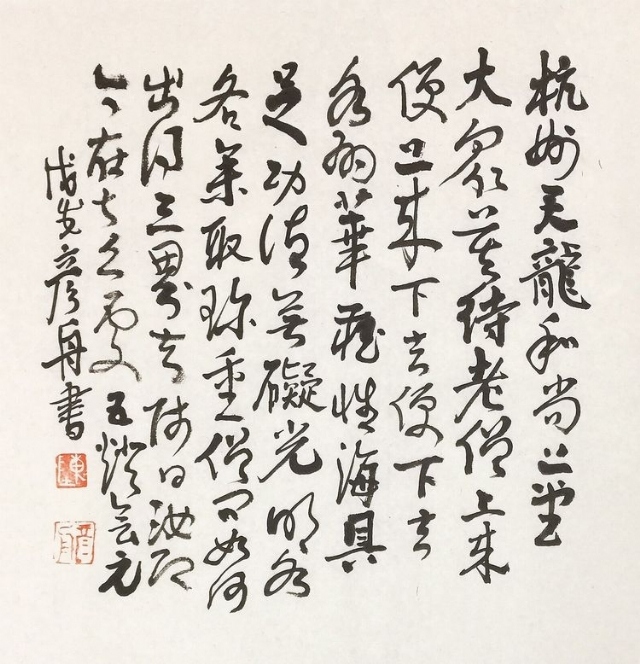 杭州天龍和尚上堂
大眾莫待老僧上来
便上来下去便下去
各有華藏性海具
足功德無礙光明各
各参取珍重僧問如何
出得三界去師曰汝即
今在甚么處 五燈會元
戊戌彦舟書